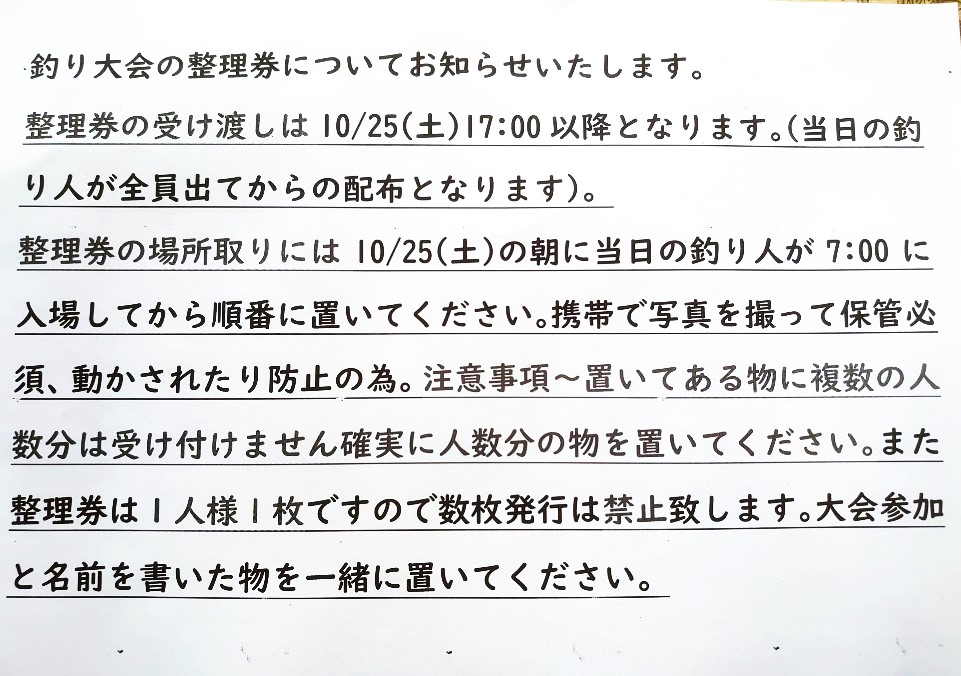 釣り大会の整理券についてお知らせいたします。
整理券の受け渡しは 10/25(土)17:00 以降となります。(当日の釣
り人が全員出てからの配布となります)。
整理券の場所取りには 10/25(土)の朝に当日の釣り人が 7:00 に
入場してから順番に置いてください。携帯で写真を撮って保管必
須、動かされたり防止の為。注意事項～置いてある物に複数の人
数分は受け付けません確実に人数分の物を置いてください。また
整理券は1人様1枚ですので数枚発行は禁止致します。大会参加
と名前を書いた物を一緒に置いてください。